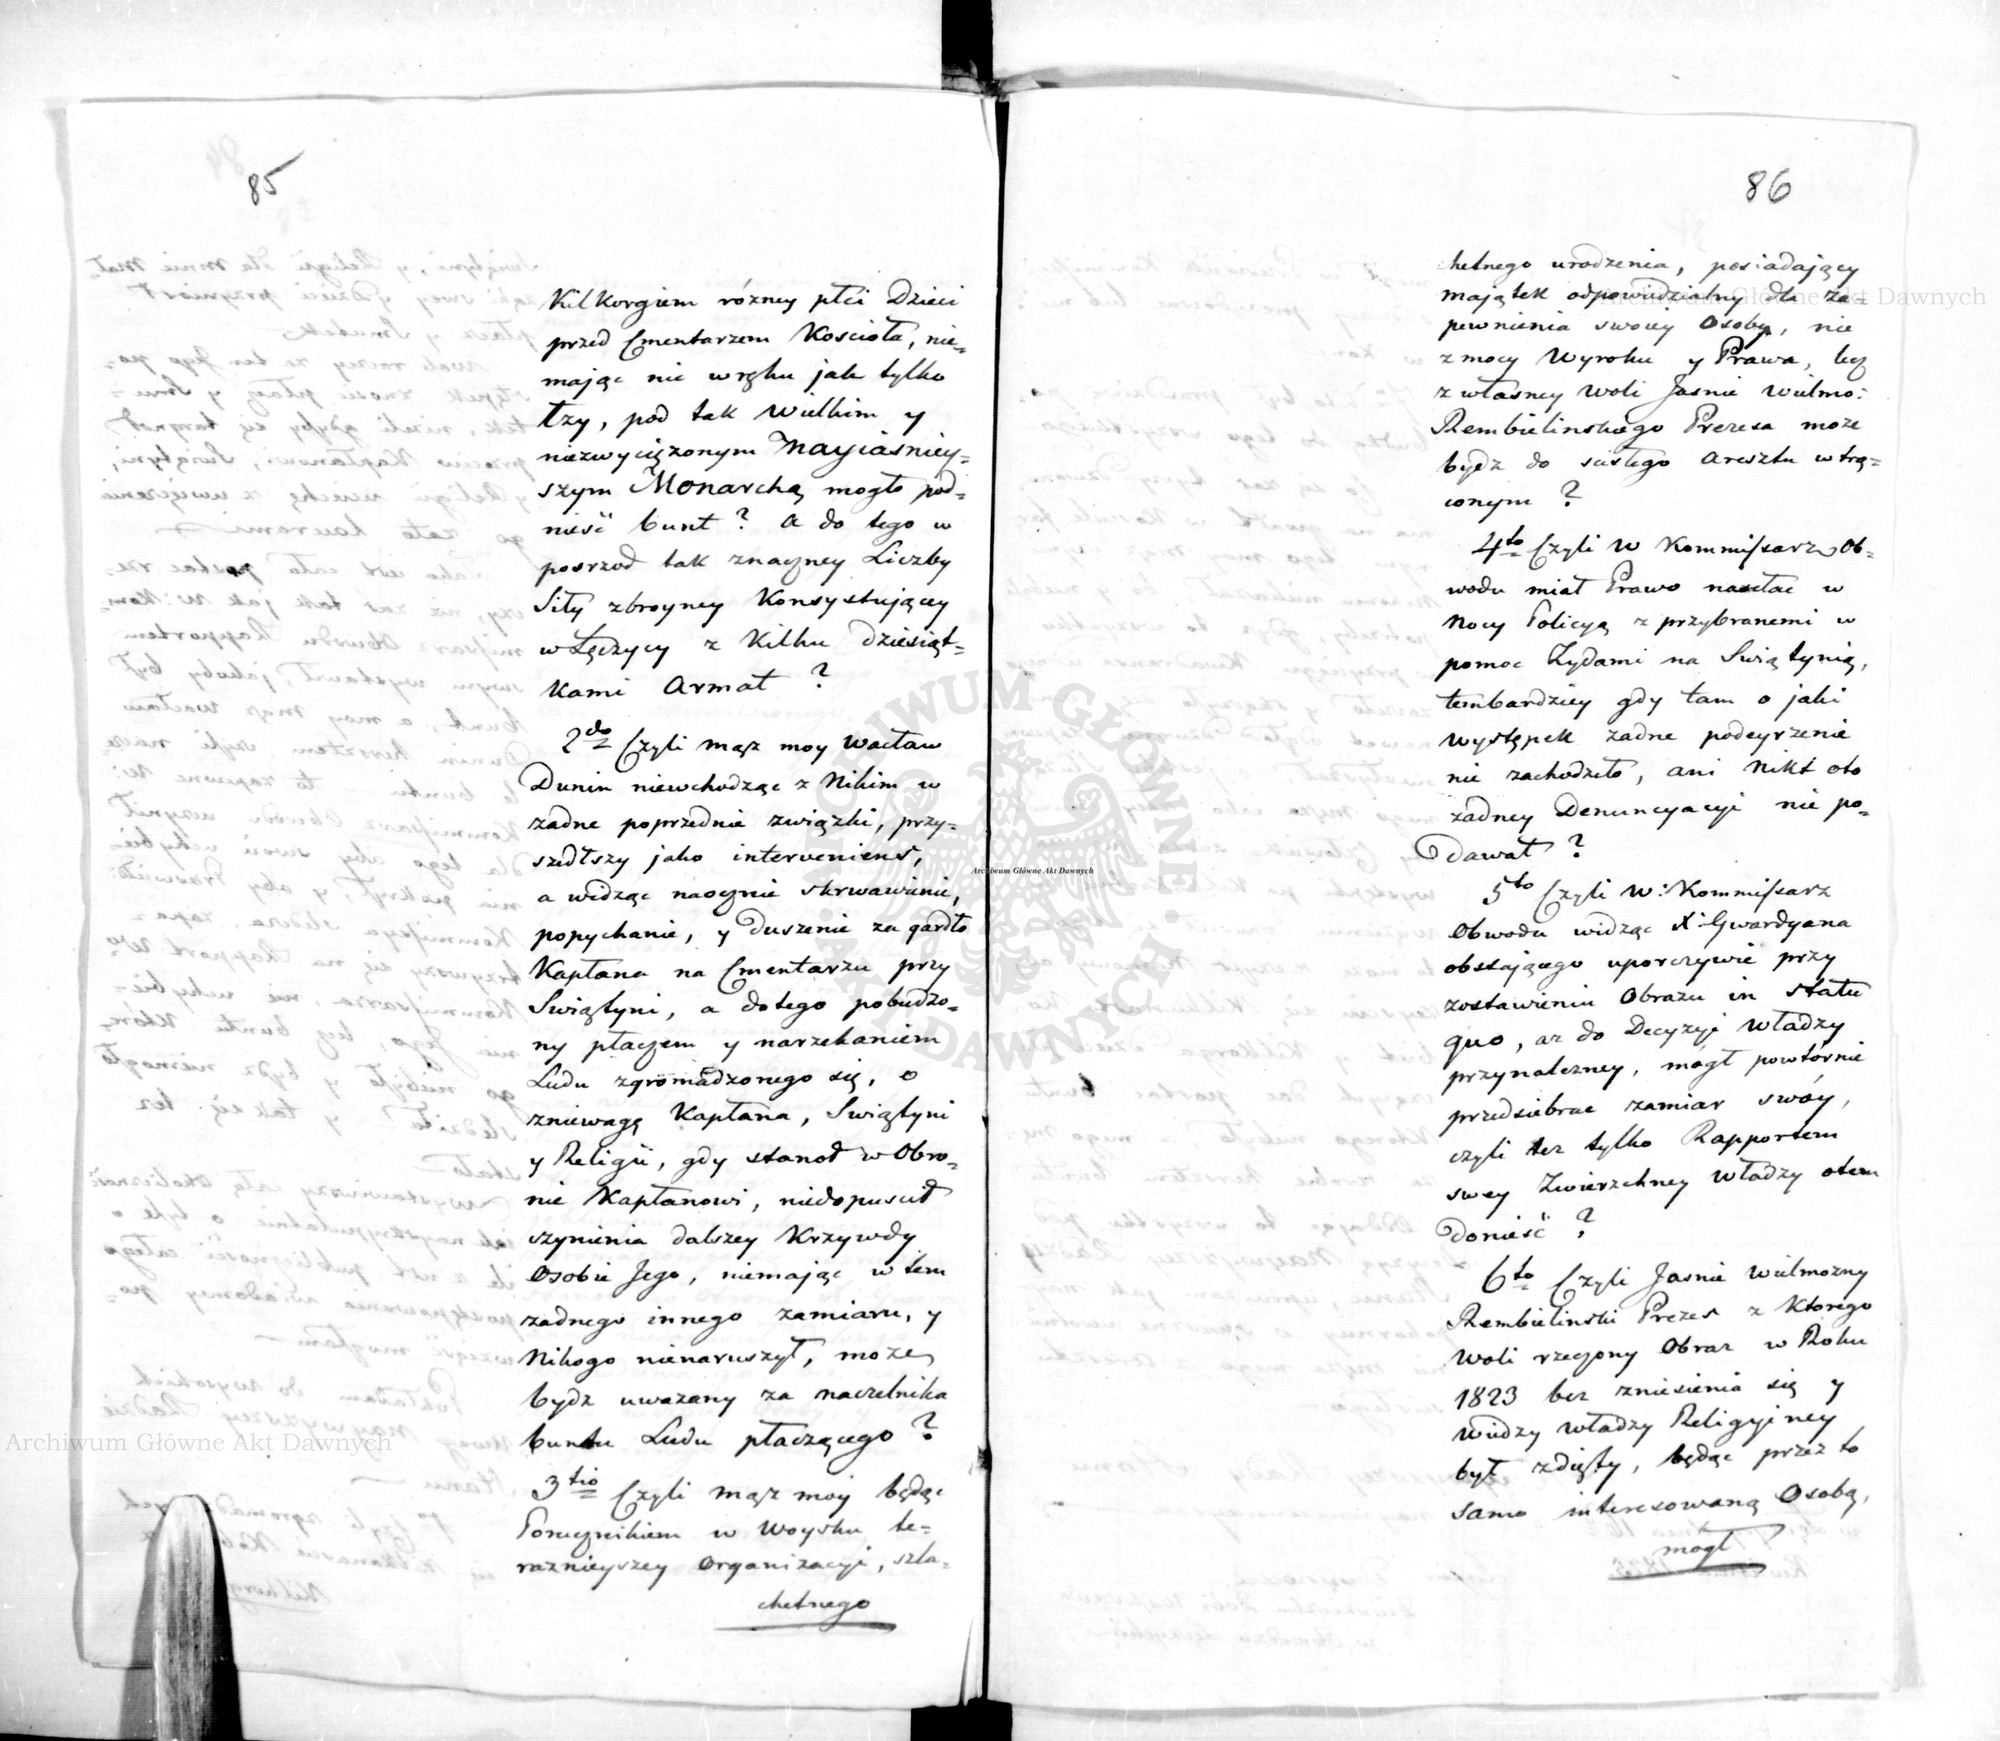 85
Kilkorgiem rózney płci Dzieci
przed Cmentarzem Kościoła, nie=
mając nic w ręku jak tylko
łzy, pod tak Wielkim y
niezwyciężonym Nayiaśniey=
szym Monarchą mogło pod=
nieść bunt? a do tego w
posrzod tak znaczney Liczby
Siły zbroyney Konsystuiącey
w Łęczycy z Kilku dziesiąt=
Kami Armat?
2do Czyli mąż moy Wacław
Dunin niewchodząc z Nikim w
zadne poprzednie związki, przy=
szedłszy jako interveniens,
a widząc naocznie skrwawienie,
popychanie, y duszenie za gardło
Kapłana na Cmentarzu przy
Swiątyni, a dotego pobudzo=
ny płaczem y narzekaniem
Ludu zgromadzonego się, o
zniewagę Kapłana, Swiątyni
y Religii, gdy stanoł w Obro=
nie Kapłanowi, niedopuscił
czynienia dalszey Krzywdy
Osobie Jego, niemając w tem
zadnego innego zamiaru, y
Nikogo nienaruszył, może
bydz uwazany za naczelnika
buntu Ludu płaczącego?
3tio Czyli mąż moy będąc
Porucznikiem w Woysku te=
raznieyszey Organizacyi, szla=
chetnego
86
chetnego urodzenia, posiadający
majątek odpowiedzialny dla za=
pewnienia swoiey Osoby, nie
z mocy Wyroku y Prawa, lecz
z własney Woli Jasnie Wielmo:
Rembielinskiego Prezesa moze
bydz do scisłego Aresztu wtrą=
conym?
4to Czyli W Kommissarz Ob=
wodu miał Prawo nasłac w
Nocy Policyą z przybranemi w
pomoc Zydami na Swiątynią,
tembardziey gdy tam o jaki
Występek zadne podeyrzenie
nie zachodziło, ani Nikt oto
zadney Denuncyacyi nie po=
dawał?
5to Czyli W: Kommissarz
Obwodu widząc X: Gwardyana
obstającego uporczywie przy
zostawieniu Obrazu in statu
quo, az do Decyzyi Władzy
przynalezney, mógł powtórnie
przedsiebrac zamiar swóy,
czyli tez tylko Rapportem
swey Zwierzchney Władzy otem
donieść?
6to Czyli Jasnie Wielmozny
Rembielinski Prezes z Ktorego
Woli rzeczony Obraz w Roku
1823 bez zniesienia się y
wiedzy Władzy Religijney
był zdięty, będąc przez to
samo interesowaną Osobą,
mogł
Archiwum Główne Akt Dawnych
Archiwum Główne Akt Dawnych
Archiwum Główne Akt Dawnych
ARCHIWUM GŁÓWNE AKT DAWNYCH